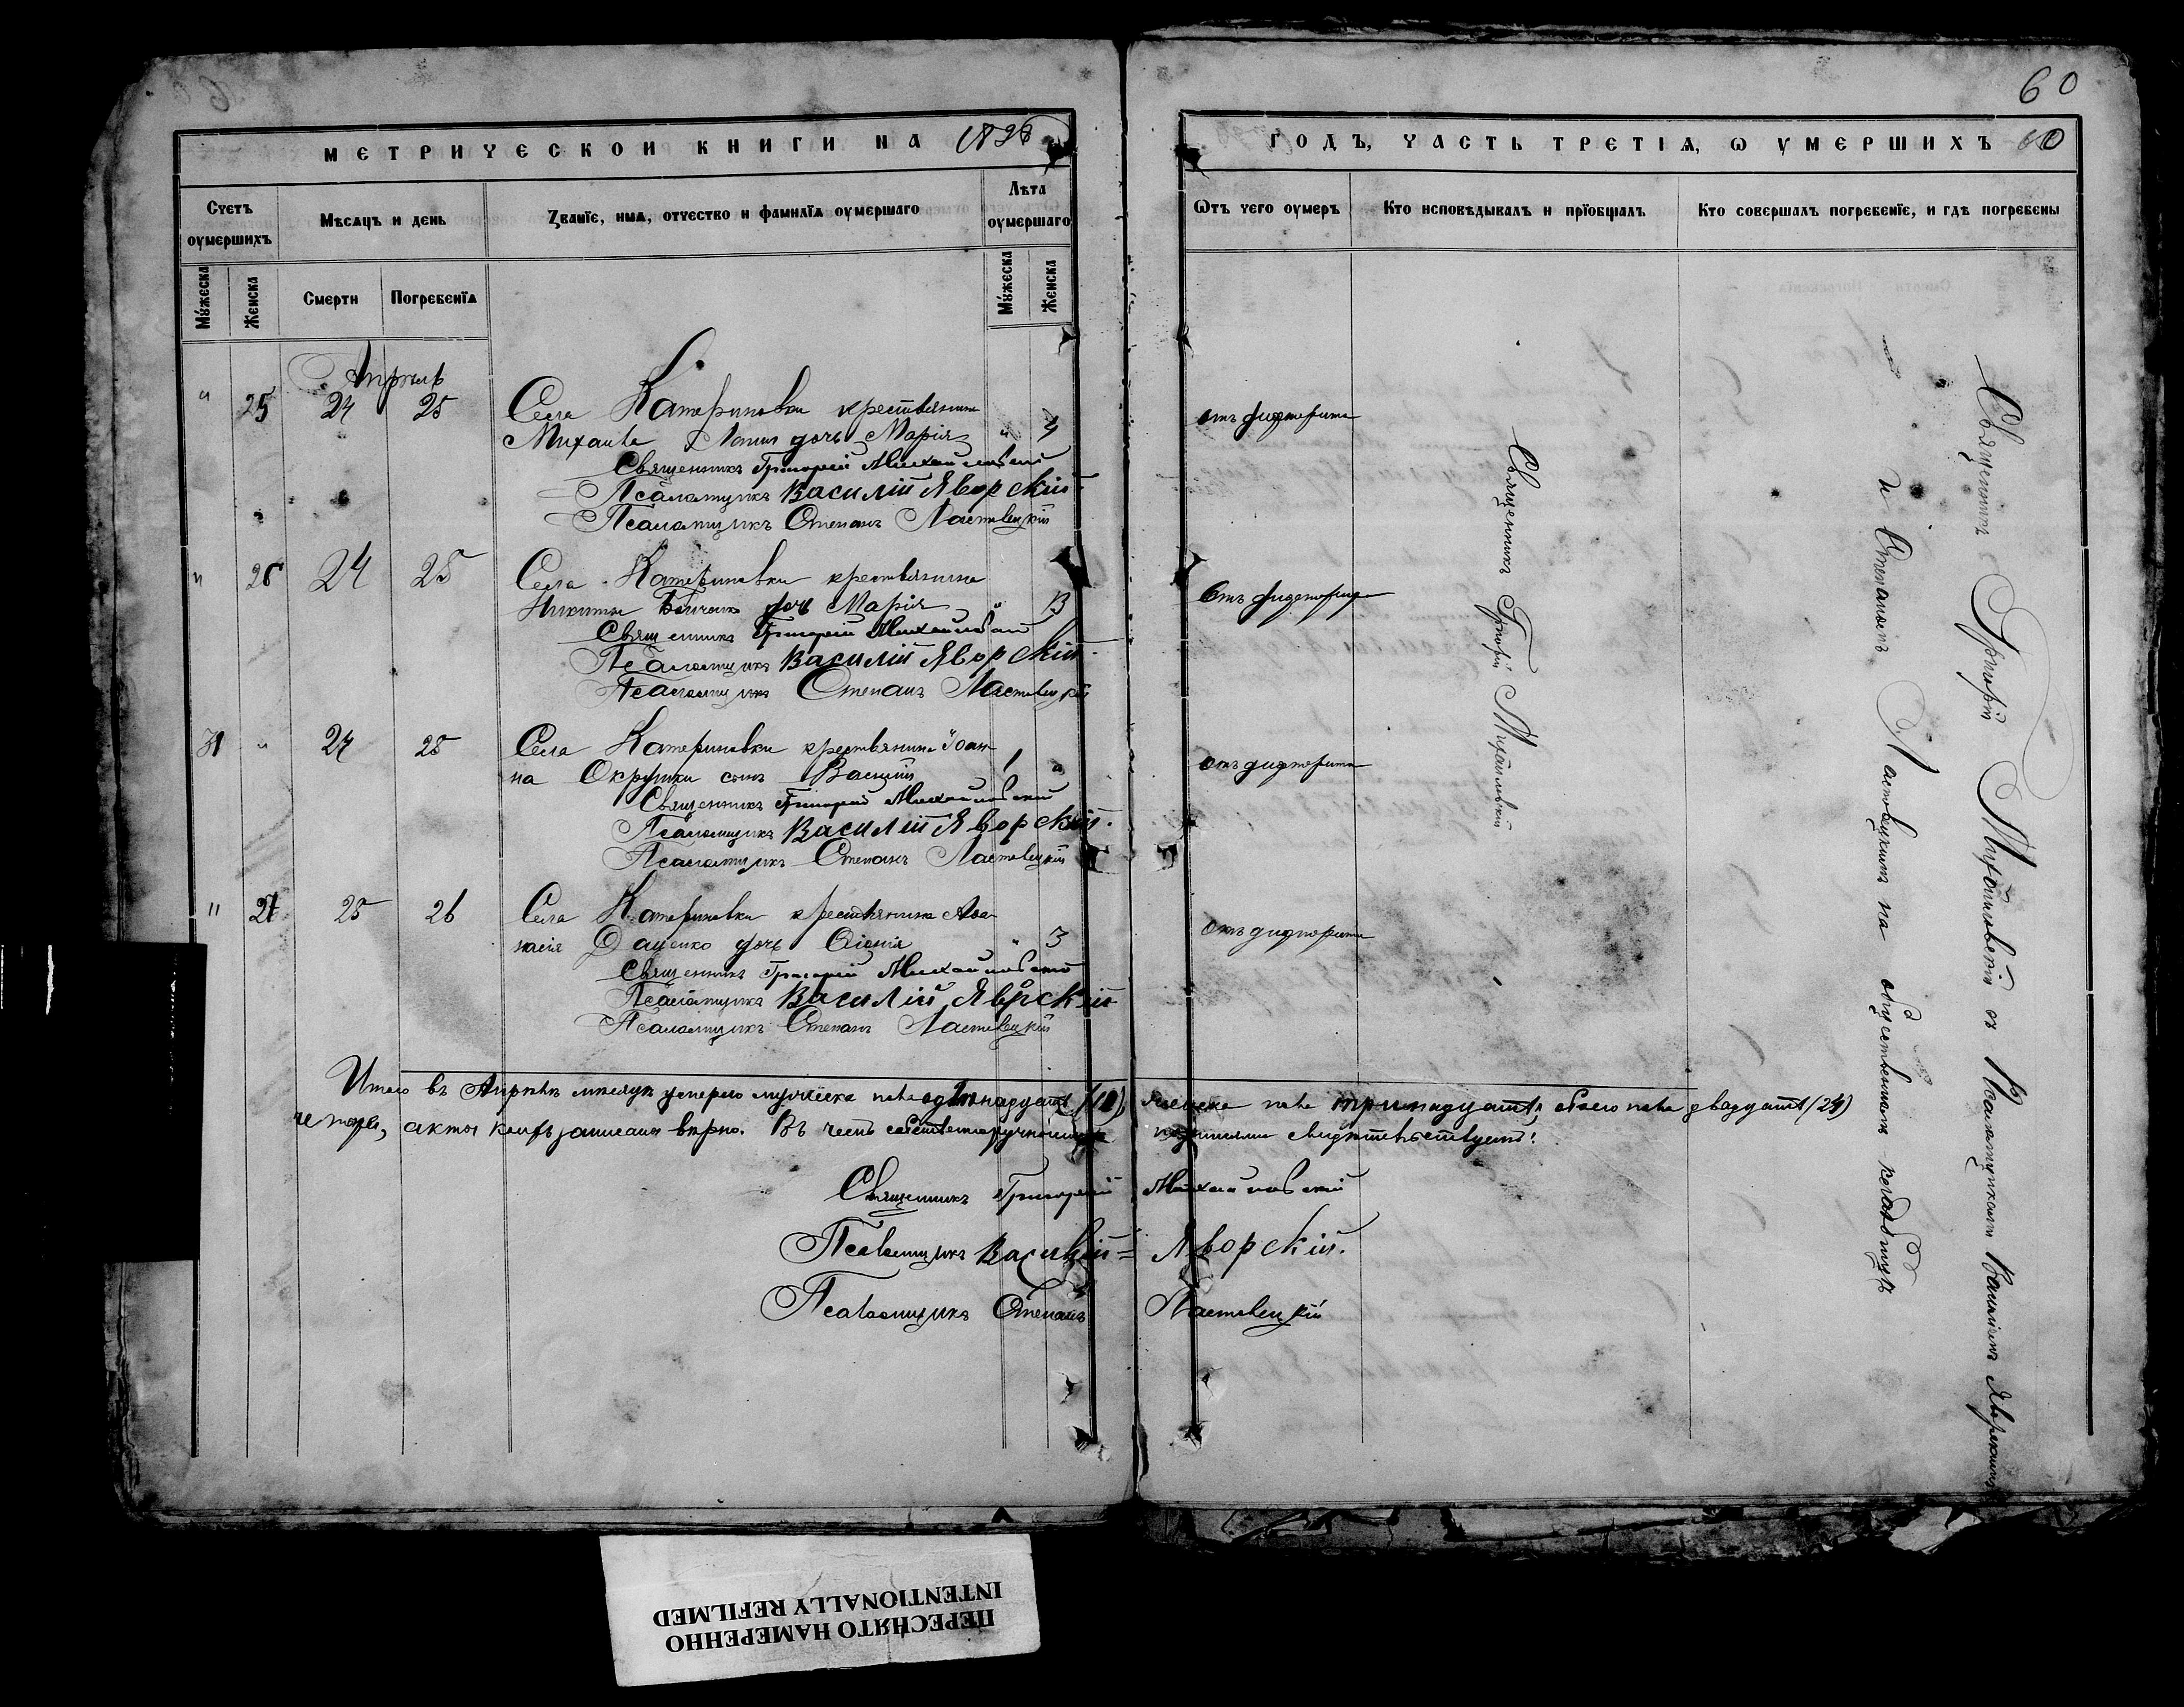 60
МЕТРИЧЕСКОЙ КНИГИ НА 1898
ГОДЪ, ЧАСТЬ ТРЕТІѦ, Ѡ УМЕРШИХЪ 60
Счетъ оумершихъ
Мѣсѧцъ и день
Званїе, имѧ, отчество и фамилїѧ оумершаго
Лѣта оумершаго
Ѡтъ чего оумеръ
Кто исповѣдывалъ и прїобщалъ
Кто совершалъ погребенїе, и гдѣ погребены
Мꙋжеска
Женска
Смерти
Погребенїѧ
Мꙋжеска
Женска
Апрѣль
" 25 24 25 Села Катериновки крестьянина
Михаила дочь Марія " отъ дифтерита
Священникъ Григорій Михайловскій
Псаломщикъ Василій Яворскій
Псаломщикъ Степанъ Ластовецкій
" 26 24 25 Села Катериновки крестьянина
Никиты дочь Марія " 13 Отъ дифтерита
Священникъ Григорій Михайловскій
Псаломщикъ Василій Яворскій
Псаломщикъ Степанъ Ластовецкій
" 24 25 Села Катериновки крестьянина Іоан-
на Окрушки сынъ Василій 1 " Отъ дифтерита
Священникъ Григорій Михайловскій
Псаломщикъ Василій Яворскій.
Псаломщикъ Степанъ Ластовецкій
" 27 25 26 Села Катериновки крестьянина Аѳа-
насія Даценко дочь " 3 Отъ дифтерита
Священникъ Григорій Михайловскій
Псаломщикъ Василій Яворскій
Псаломщикъ Степанъ Ластовецкій
Священникъ Григорій Михайловскій
Священникъ Григорій Михайловскій съ Псаломщиками Василіемъ Яворскимъ
и Степаномъ Ластовецкимъ на общественномъ кладбищѣ
Итого въ Апрѣлѣ мѣсяцѣ умерло мужеска пола одинадцать женска пола тринадцать, обоего пола двадцать (24)
четыре, акты записаны вѣрно. Въ чемъ собственноручною подписями свидѣтельствуемъ:
Священникъ Григорій Михайловскій
Псаломщикъ Василій Яворскій.
Псаломщикъ Степанъ Ластовецкій
ПЕРЕСНЯТО НАМЕРЕННО
INTENTIONALLY REFILMED